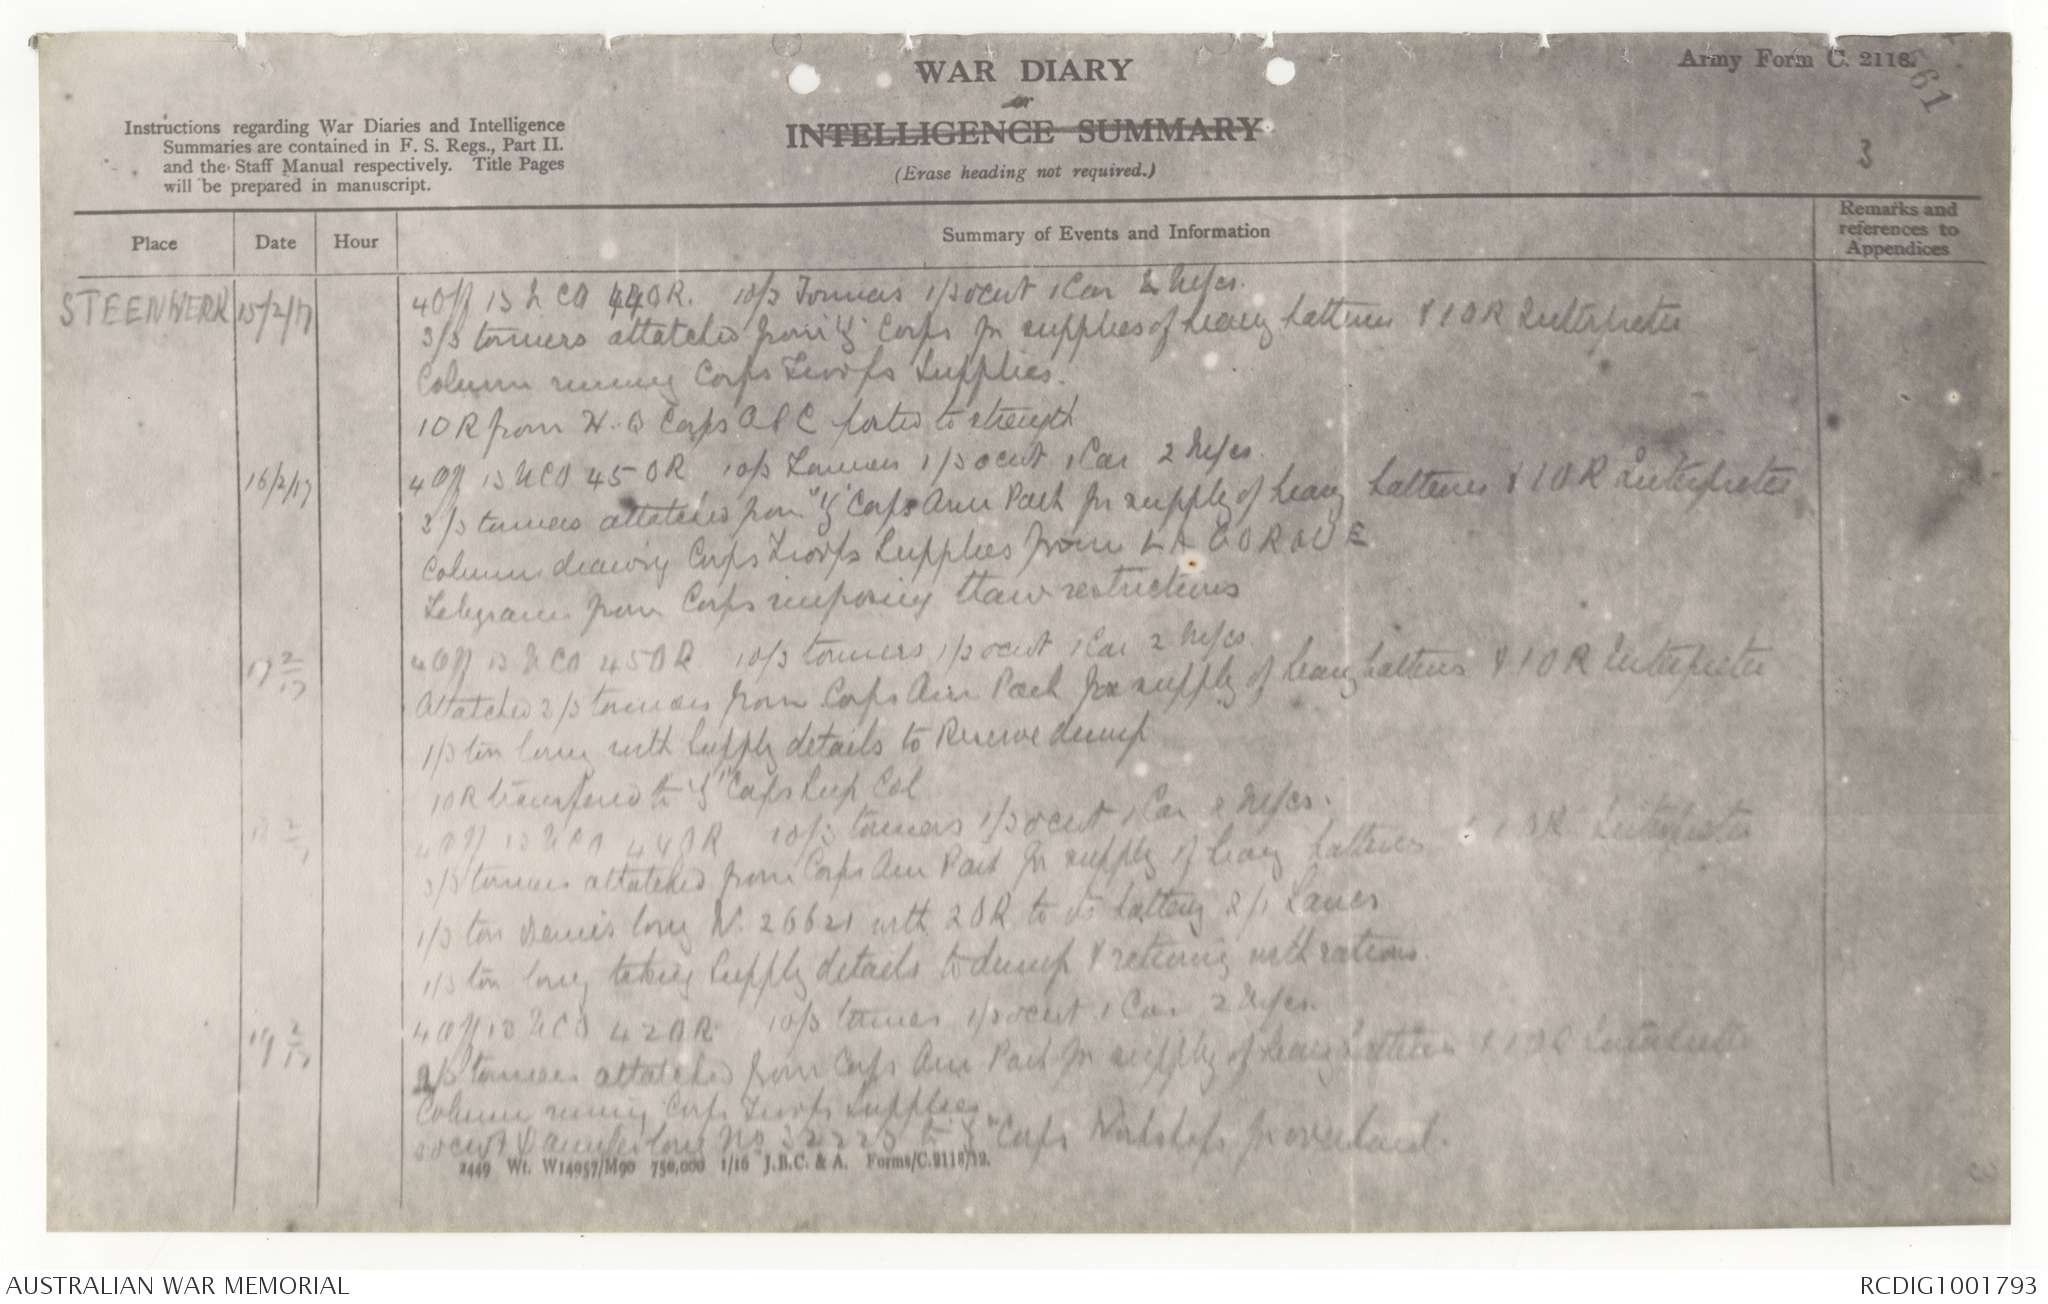 Army Form C. 2118.
61
WAR DIARY
or
INTELLIGENCE SUMMARY
(Erase heading not required.)
3
Instructions regarding War Diaries and Intelligence
Summaries are contained in F. S. Regs., Part II.
and the Staff Manual respectively. Title Pages
will be prepared in manuscript.
Place
Date
Hour
Summary of Events and Information
Remarks and
references to
Appendices
STEENWERK 15/2/17 4 Off 13 NCO 44 OR. 10/3 Tonners 1/30 cwt 1 Car 2 M/cs.
3/3 tonners attatched from "Y" Corps for supplies of heavy batteries & 1 OR Interpreter
Column running Corps Troops Supplies.
1 OR from H.Q Corps ASC posted to strength
16/2/17 4 Off 13 NCO 45 OR 10/3 Tonners 1/30 cwt 1 Car 2 M/cs.
3/3 tonners attatched from "Y" Corps Am Park for supply of heavy batteries & 1 OR Interpreter
Column drawing Corps Troops Supplies from LA GORGUE
Telegram from Corps imposing thaw restrictions
17 2/17 4 Off 13 NCO 45 OR 10/3 tonners 1/30 cwt 1 Car 2 M/cs.
Attatched 2/3 tonners from Corps Am Park for supply of heavy batteries & 1 OR Interpreter
1/3 ton lorry with Supply details to Reserve dump
1 OR transferred to "Y" Corps Sup Col
18 2/17 4 Off 13 NCO 44 OR 10/3 tonners 1/30 cwt 1 Car 2 M/cs.
3/3 tonners attatched from Corps Am Park for supply of heavy batteries & 1 OR Interpreter
1/3 ton Dennis lorry N. 26621 with 2 OR to its battery 2/1 Lancs
1/3 ton lorry taking Supply details to dump & returning with rations.
19 2/17 4 Off 13 NCO 42 OR 10/3 tonners 1/30 cwt 1 Car 2 M/cs.
2/3 tonners attatched from Corps Am Park for supply of heavy batteries & 1 OR Interpreter
Column running Corps Troops Supplies
30 cwt Daimler lorry No 32223 to "Y" Corps Workshops for overhaul.
2449 Wt. W14957/M90 750,000 1/16 J.B.C. & A. Forms/C.2118/12.
AUSTRALIAN WAR MEMORIAL
RCDIG1001793